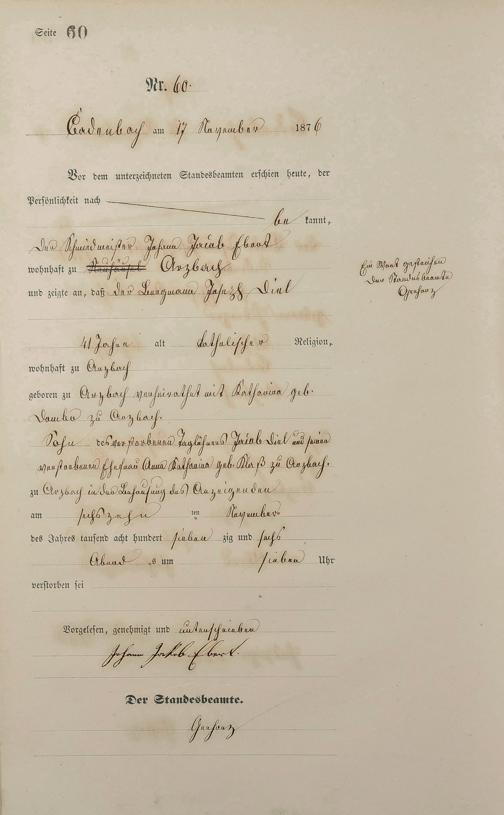 Seite 60
Nr. 60.
Cadenbach am 17 November 1876
Vor dem unterzeichneten Standesbeamten erschien heute, der
Persönlichkeit nach
be kannt,
der Schmiedmeister Johann Jacob Ebert
wohnhaft zu Arzbach
und zeigte an, daß der Bergmann Joseph Diel
41 Jahre alt katholischer Religion,
wohnhaft zu Arzbach
geboren zu Arzbach verheirathet mit Katharina geb.
Dombo zu Arzbach.
Sohn des verstorbenen Taglöhners Jacob Diel und seiner
verstorbenen Ehefrau Anna Katharina geb. Klaß zu Arzbach.
zu Arzbach in der Behausung des Anzeigenden
am sechszehn ten November
des Jahres tausend acht hundert sieben zig und sechs
Abend s um sieben Uhr
verstorben sei
Vorgelesen, genehmigt und unterschrieben
Johann Jakob Ebert.
Der Standesbeamte.
Gerharz
Ein Wort gestrichen
Der Standesbeamte
Gerharz